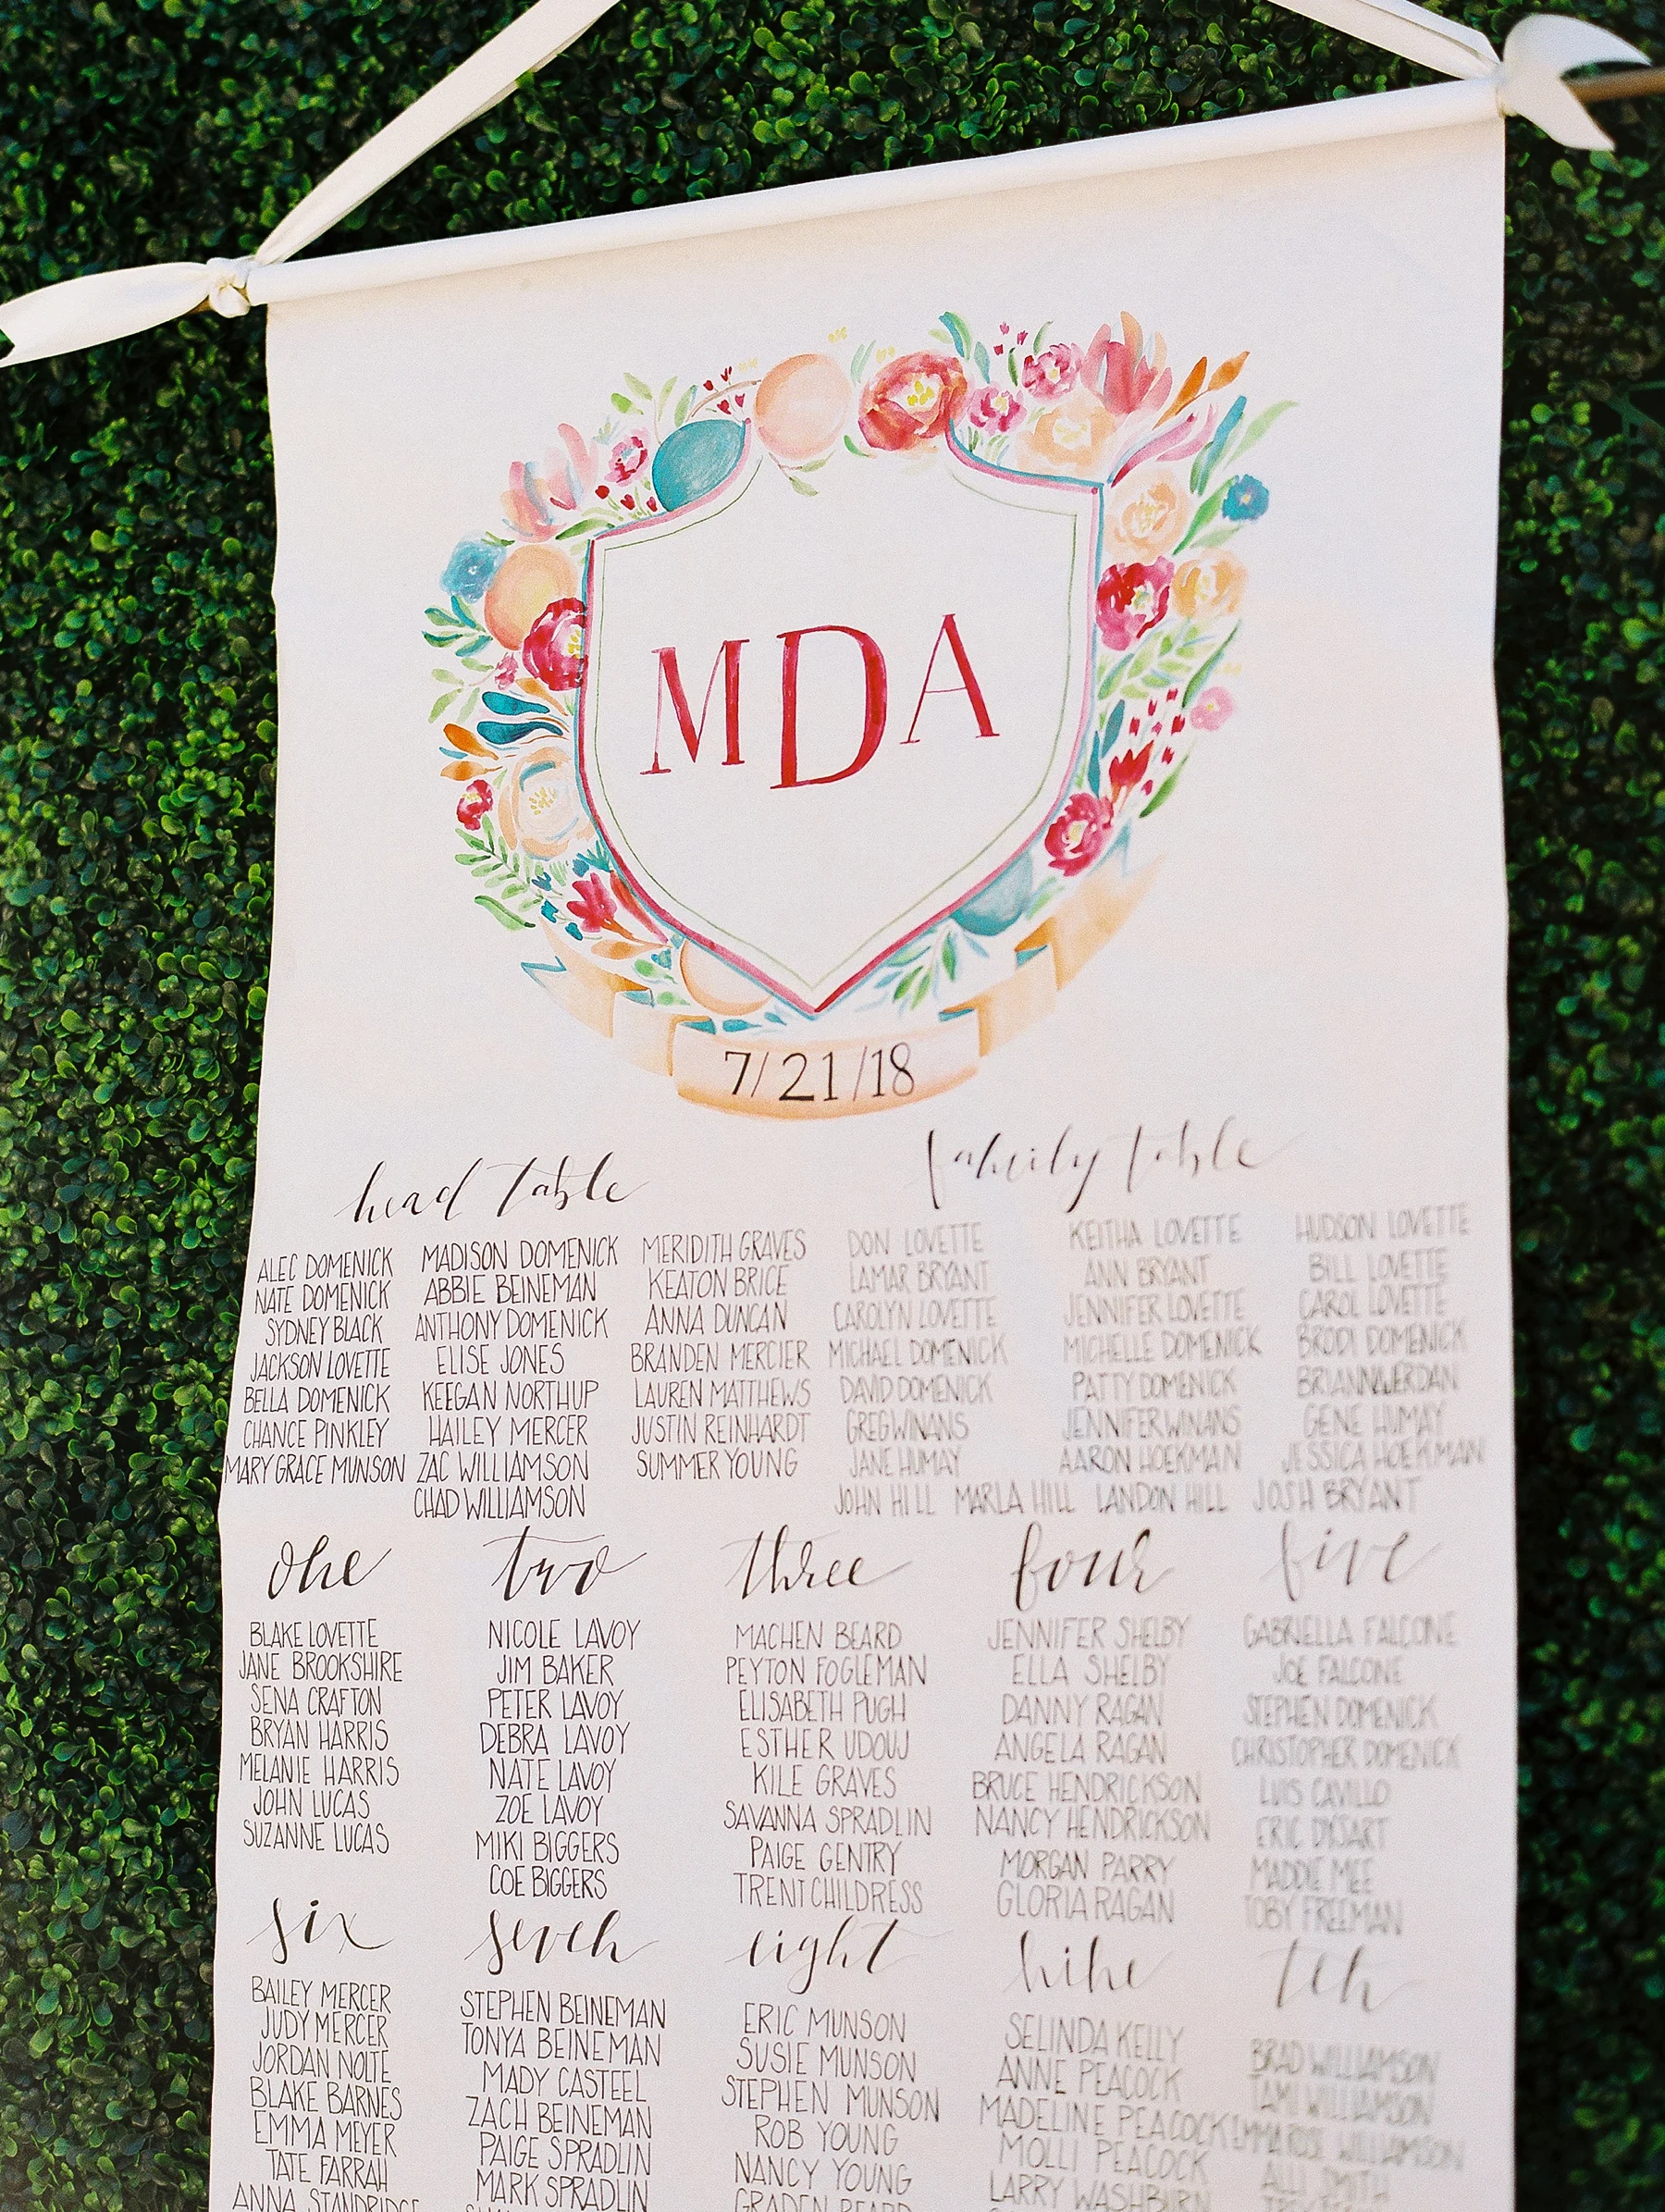 MDA
7/21/18
head table
ALEC DOMENICK
NATE DOMENICK
SYDNEY BLACK
JACKSON LOVETTE
BELLA DOMENICK
CHANCE PINKLEY
MARY GRACE MUNSON
MADISON DOMENICK
ABBIE BEINEMAN
ANTHONY DOMENICK
ELISE JONES
KEEGAN NORTHUP
HAILEY MERCER
ZAC WILLIAMSON
CHAD WILLIAMSON
MERIDITH GRAVES
KEATON BRICE
ANNA DUNCAN
BRANDEN MERCIER
LAUREN MATTHEWS
JUSTIN REINHARDT
SUMMER YOUNG
family table
DON LOVETTE
LAMAR BRYANT
CAROLYN LOVETTE
MICHAEL DOMENICK
DAVID DOMENICK
GREG WINANS
JANE HUMAY
KEITHA LOVETTE
ANN BRYANT
JENNIFER LOVETTE
MICHELLE DOMENICK
PATTY DOMENICK
JENNIFER WINANS
AARON HOEKMAN
HUDSON LOVETTE
BILL LOVETTE
CAROL LOVETTE
BRODI DOMENICK
GENE HUMAY
JESSICA HOEKMAN
JOHN HILL MARLA HILL LANDON HILL JOSH BRYANT
one
BLAKE LOVETTE
JANE BROOKSHIRE
SENA CRAFTON
BRYAN HARRIS
MELANIE HARRIS
JOHN LUCAS
SUZANNE LUCAS
two
NICOLE LAVOY
JIM BAKER
PETER LAVOY
DEBRA LAVOY
NATE LAVOY
ZOE LAVOY
MIKI BIGGERS
COE BIGGERS
three
MACHEN BEARD
PEYTON FOGLEMAN
ELISABETH PUGH
ESTHER UDOUJ
KILE GRAVES
SAVANNA SPRADLIN
PAIGE GENTRY
TRENT CHILDRESS
four
JENNIFER SHELBY
ELLA SHELBY
DANNY RAGAN
ANGELA RAGAN
BRUCE HENDRICKSON
NANCY HENDRICKSON
MORGAN PARRY
GLORIA RAGAN
five
GABRIELLA FALCONE
JOE FALCONE
STEPHEN DOMENICK
CHRISTOPHER DOMENICK
LUIS CAVILLO
ERIC DYSART
MADDIE MEE
TOBY FREEMAN
six
BAILEY MERCER
JUDY MERCER
JORDAN NOLTE
BLAKE BARNES
EMMA MEYER
TATE FARRAH
ANNA STANDRIDGE
seven
STEPHEN BEINEMAN
TONYA BEINEMAN
MADY CASTEEL
ZACH BEINEMAN
PAIGE SPRADLIN
MARK SPRADLIN
eight
ERIC MUNSON
SUSIE MUNSON
STEPHEN MUNSON
ROB YOUNG
NANCY YOUNG
GRADEN BEARD
nine
SELINDA KELLY
ANNE PEACOCK
MADELINE PEACOCK
MOLLI PEACOCK
LARRY WASHBURN
ten
BRAD WILLIAMSON
TAMI WILLIAMSON
EMMA ROSE WILLIAMSON
ALLI SMITH